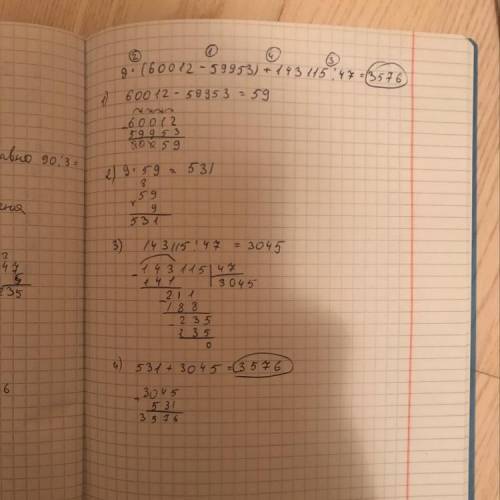 ② ① ④ ③
9 · (60012 - 59953) + 143115 : 47 = 3576
1) 60012 - 59953 = 59
- 60012
59953
59
2) 9 · 59 = 531
8
× 59
9
531
3) 143115 : 47 = 3045
- 143115 | 47
141 3045
- 211
188
- 235
235
0
4) 531 + 3045 = 3576
+ 3045
531
3576
90:3=
2
47
5
235
6